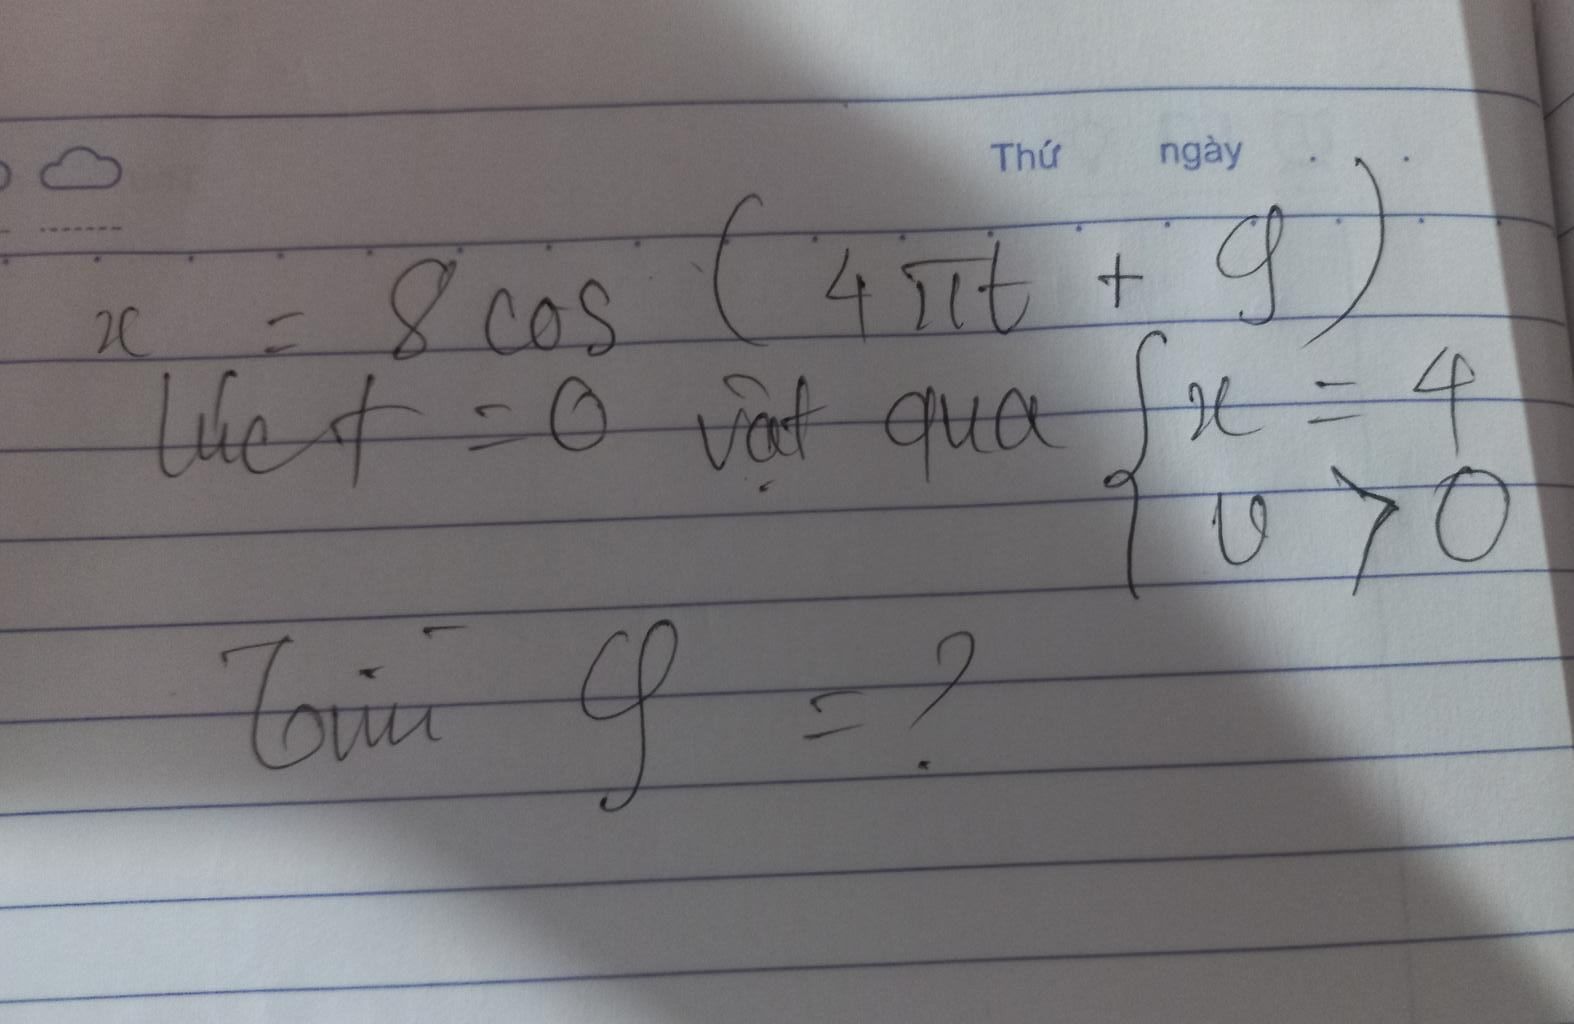 Thứ ngày
x = 8 cos (4πt + φ)
lúc t = 0 vật qua { x = 4
v > 0
Tìm φ = ?